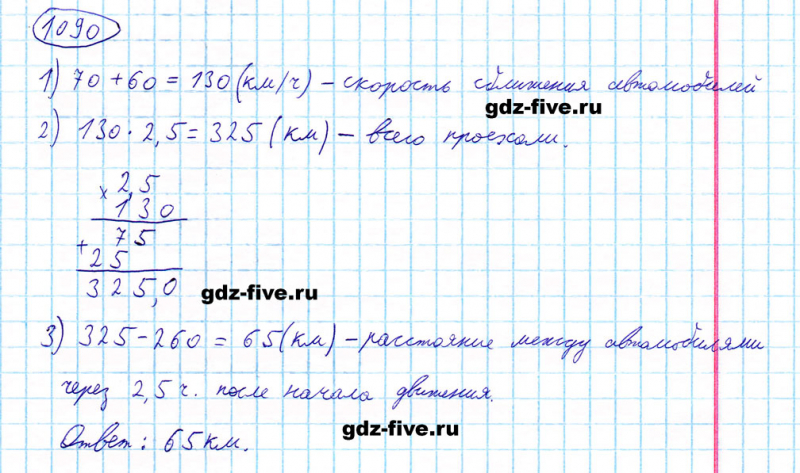 1090
1) 70 + 60 = 130 (км/ч) – скорость сближения автомобилей
gdz-five.ru
2) 130 · 2,5 = 325 (км) – всего проехали.
× 2,5
130
+ 75
25
325,0
gdz-five.ru
3) 325 – 260 = 65 (км) – расстояние между автомобилями
через 2,5 ч. после начала движения.
Ответ: 65 км.
gdz-five.ru